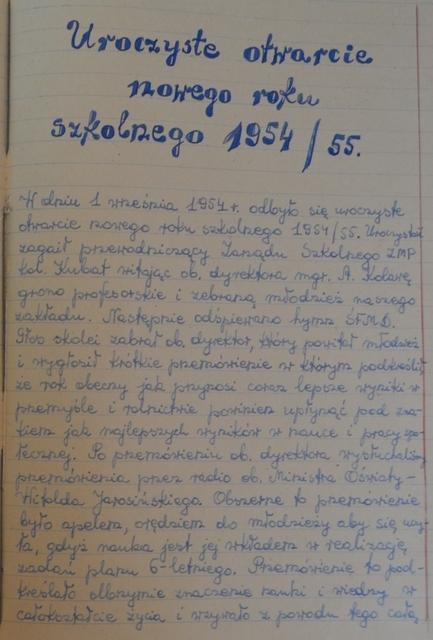 Uroczyste otwarcie
nowego roku
szkolnego 1954/55.
W dniu 1 września 1954 r. odbyło się uroczyste
otwarcie nowego roku szkolnego 1954/55. Uroczystość
zagaił przewodniczący Zarządu Szkolnego ZMP
kol. Kubat witając ob. dyrektora mgr. A. Kolarę
grono profesorskie i zebraną młodzież naszego
zakładu. Następnie odśpiewano hymn ŚFMD.
Głos skolei zabrał ob. dyrektor, który powitał młodzież
i wygłosił krótkie przemówienie w którym podkreślił,
że rok obecny jak przynosi coraz lepsze wyniki w
przemyśle i rolnictwie powinien upłynąć pod zna-
kiem jak najlepszych wyników w nauce i pracy spo-
łecznej. Po przemówieniu ob. dyrektora wysłuchaliśmy
przemówienia przez radio ob. Ministra Oświaty-
Witolda Jarosińskiego. Obszerne to przemówienie
było apelem, orędziem do młodzieży aby się uczy-
ła, gdyż nauka jest jej wkładem w realizację
zadań planu 6-letniego. Przemówienie to pod-
kreślało olbrzymie znaczenie nauki i wiedzy w
całokształcie życia i wzywało z powodu tego całą